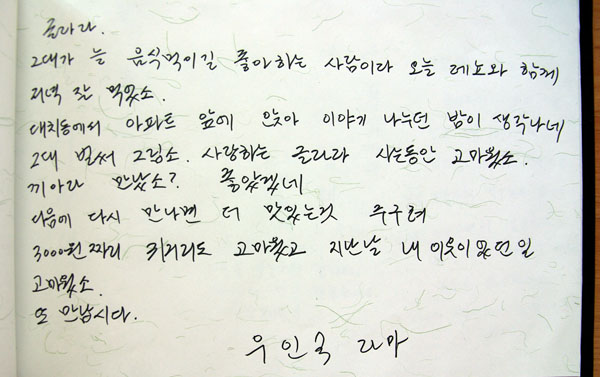 글라라.
그대가 늘 음식먹이길 좋아하는 사람이라 오늘 레오와 함께
저녁 잘 먹었소.
대치동에서 아파트 앞에 앉아 이야기 나누던 밤이 생각나네
그대 벌써 그립소. 사랑하는 글라라 사는동안 고마웠소.
끼아라 만났소? 좋았겠네
다음에 다시 만나면 더 맛있는것 주구려
3000원짜리 귀거리도 고마웠고 지난날 내 이웃이었던일
고마웠소.
또 만납시다.
우인숙 라마